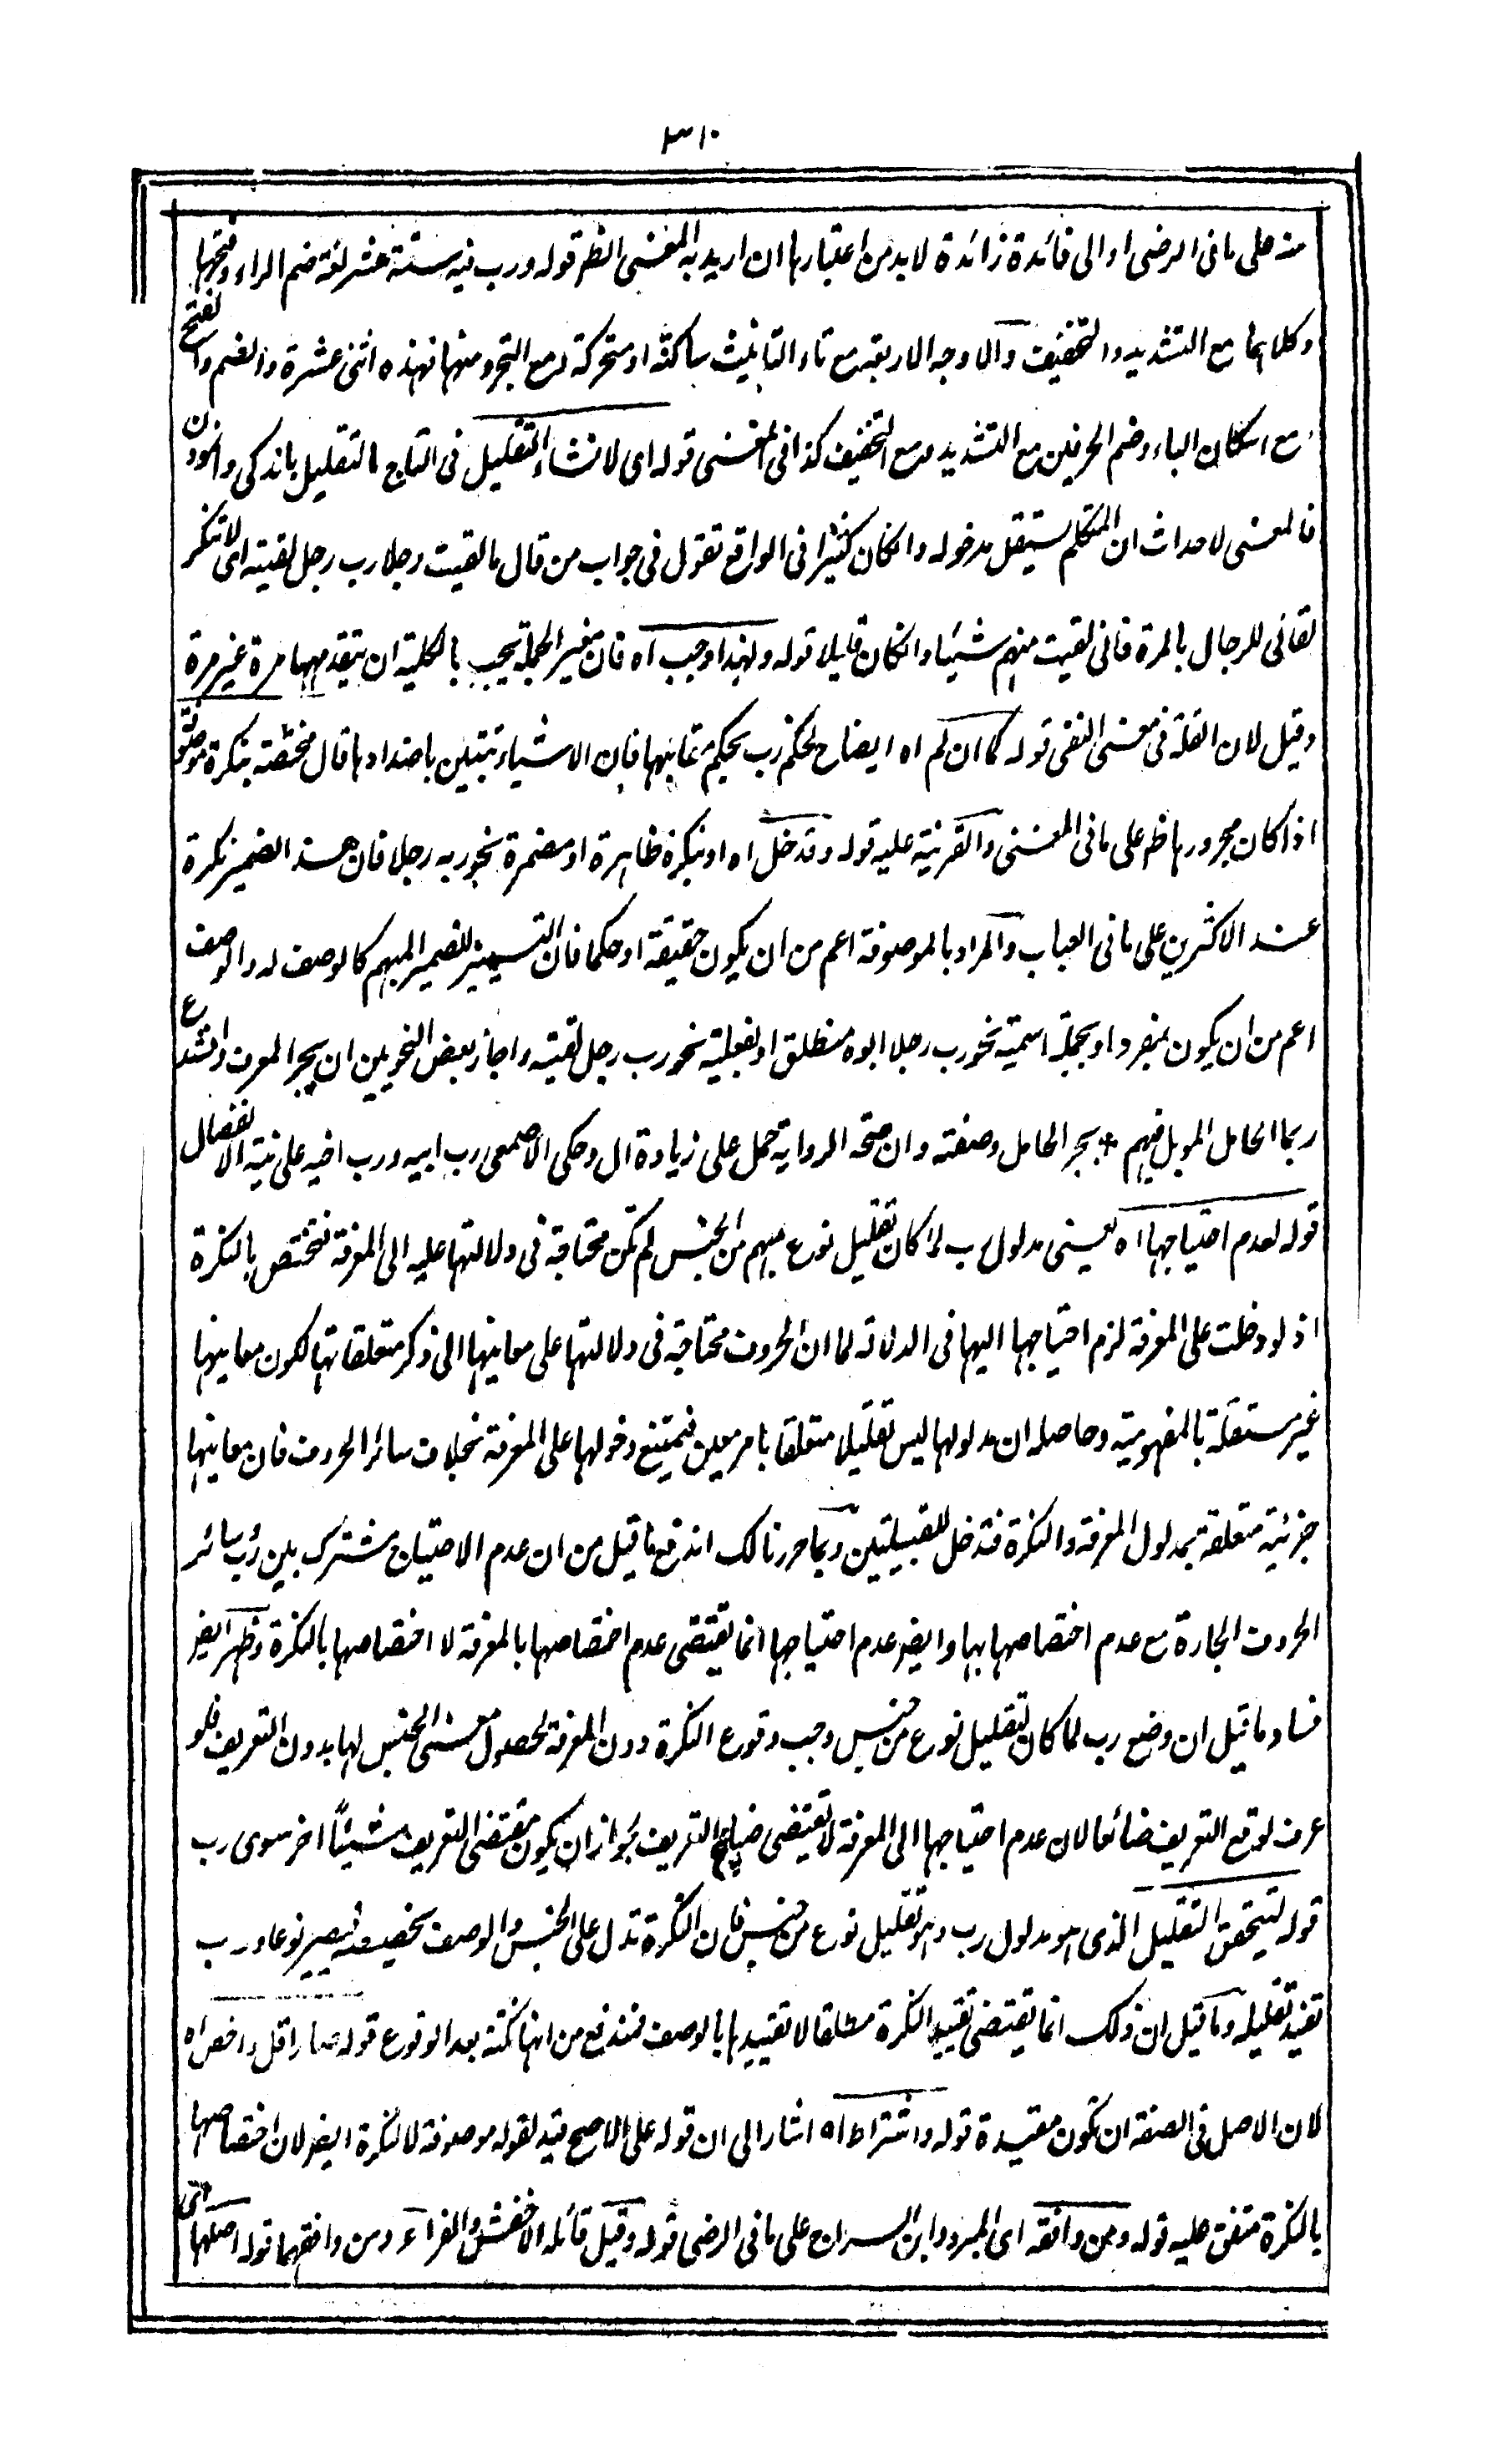 ٣١٠
منه على ما فى الرضى او الى فائدة زائدة لابد من اعتبارها ان اريد به المعنى النظر قوله ورب فيه ستة عشر لغة ضم الراء وفتحها
وكلاهما مع التشديد والتخفيف والاوجه الاربعة مع تاء التانيث ساكنة او متحركة ومع التجرد منها فهذه اثنى عشرة والضم والفتح
مع اسكان الباء وضم الحرفين مع التشديد ومع التخفيف كذا فى المغنى قوله اى لانشاء التقليل فى التاج التقليل باندكى وانمودن
فالمعنى لاحداث ان المتكلم يستقل مدخوله وانكان كثيرا فى الواقع تقول فى جواب من قال ما لقيت رجلا رب رجل لقيته اى لا تنكر
لقائى للرجال بالمرة فانى لقيت منهم شيئا وانكان قليلا قوله ولهذا وجب اه فان مغير الجملة يجب بالكلية ان يتقدمها مرة غير مرة
وقيل لان القلة فى معنى النفى قوله كما ان لم اه ايضاح لحكم رب بحكم مقابلها فان الاشياء تتبين باضدادها قال مختصة بنكرة موصوفة
اذا كان مجرورها ظم على ما فى المغنى والقرينة عليه قوله وقد دخل اه او بنكرة ظاهرة او مضمرة نحو ربه رجلا فان هذا الضمير نكرة
عند الاكثرين على ما فى العباب والمراد بالموصوفة اعم من ان يكون حقيقة او حكما فان التمييز للضمير المبهم كالوصف له والوصف
اعم من ان يكون بمفرد او بجملة اسمية نحو رب رجلا ابوه منطلق او بفعلية نحو رب رجل لقيته واجاز بعض النحويين ان يجر المعرف وانشد ع
ربما الحامل الموبل فيهم + بجر الحامل وصفته وان صحة الرواية حمل على زيادة ال وحكى الاصمعى رب ابيه ورب اخيه على نية الانفصال
قوله لعدم احتياجها اه يعنى مدلول رب لما كان تقليل نوع مبهم من الجنس لم تكن محتاجة فى دلالتها عليه الى المعرفة فتختص بالنكرة
اذ لو دخلت على المعرفة لزم احتياجها اليها فى الدلالة لما ان الحروف محتاجة فى دلالتها على معانيها الى ذكر متعلقاتها لكون معانيها
غير مستقلة بالمفهومية وحاصله ان مدلولها ليس تقليلا متعلقا بامر معين فيمتنع دخولها على المعرفة بخلاف سائر الحروف فان معانيها
جزئية متعلقة بمدلول المعرفة والنكرة فتدخل للقبيلتين وبما حررنا لك اندفع ما قيل من ان عدم الاحتياج مشترك بين رب وسائر
الحروف الجارة مع عدم اختصاصها بها وايضر عدم احتياجها انما يقتضى عدم اختصاصها بالمعرفة لا اختصاصها بالنكرة وظهر ايضر
فساد ما قيل ان وضع رب لما كان لتقليل نوع من جنس وجب وقوع النكرة دون المعرفة لحصول معنى الجنس لها بدون التعريف فلو
عرف لوقع التعريف ضائعا لان عدم احتياجها الى المعرفة لا يقتضى ضياع التعريف لجواز ان يكون مقتضى التعريف شيئًا اخر سوى رب
قوله ليتحقق التقليل الذى هو مدلول رب وهو تقليل نوع من جنس فان النكرة تدل على الجنس والوصف يخصصه فيصير نوعا ورب
تفيد تقليله وما قيل ان ذلك انما يقتضى تقييد النكرة مطلقا لا تقييدها بالوصف فمندفع من انها نكتة بعد الوقوع قوله صار اقل واخص اه
لان الاصل فى الصفة ان تكون مقيدة قوله واشتراط اه اشار الى ان قوله على الاصح قيد لقوله موصوفة لا لنكرة ايضر لان اختصاصها
بالنكرة متفق عليه قوله ومن وافقه اى المبرد وابن السراج على ما فى الرضى قوله وقيل قائله الاخفش والفراء ومن وافقهما قوله اصلها